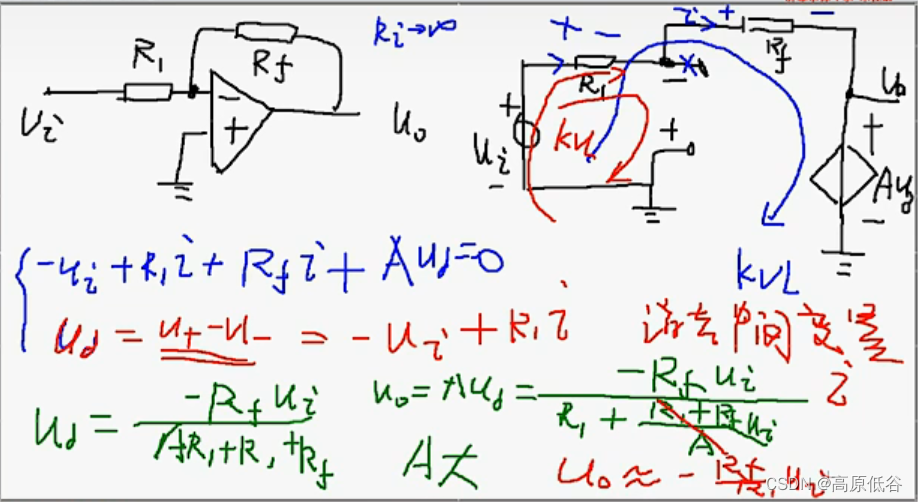 Ri→∞
R1
Rf
Vi
-
+
U0
+ -
R1
i
+ -
Rf
-
U0
+
Ui
-
KVL
+
+
AUd
-
KVL
-ui + R1i + Rf i + Aud=0
Ud = u+-u- = -Ui + R1i
消去中间变量
i
Ud = -Rf Ui / AR1+R1+Rf
u0 = Aud = -Rf ui / R1 + R1+Rf / A ui
A大
U0 ≈ - Rf / R1 ui
CSDN @高原低谷